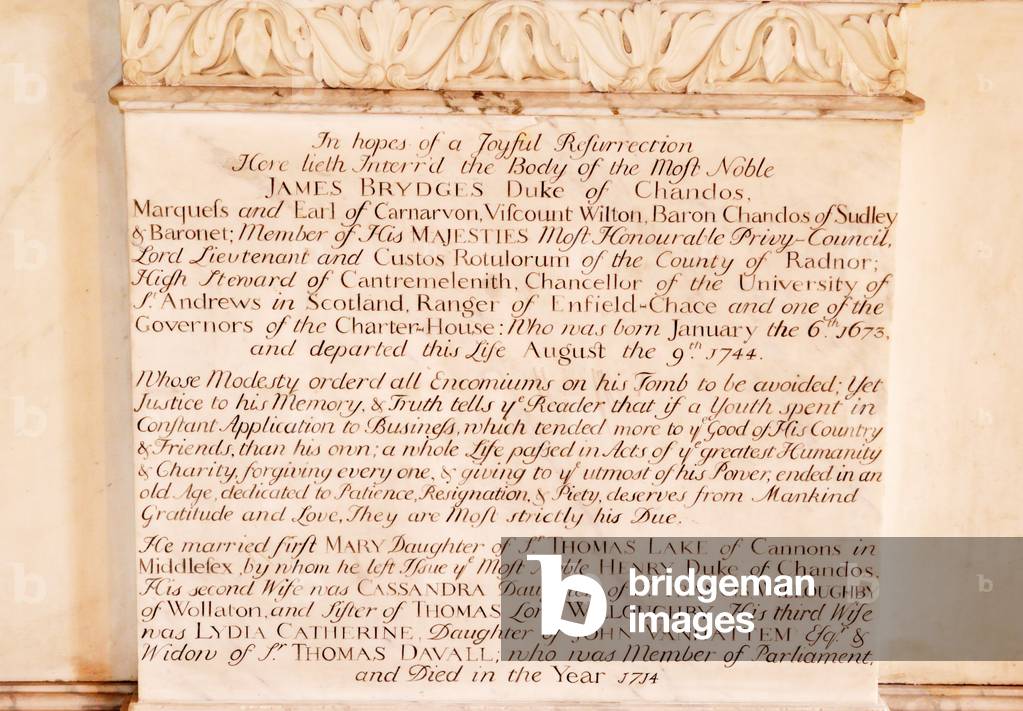 In hopes of a Joyful Reſurrection
Here lieth Interr'd the Body of the Moſt Noble
JAMES BRYDGES Duke of Chandos,
Marqueſs and Earl of Carnarvon, Viſcount Wilton, Baron Chandos of Sudley
& Baronet; Member of His MAJESTIES Moſt Honourable Privy-Council,
Lord Lieutenant and Custos Rotulorum of the County of Radnor;
High Steward of Cantremelenith, Chancellor of the University of
Sᵗ. Andrews in Scotland, Ranger of Enfield-Chace and one of the
Governors of the Charter-House: Who was born January the 6.ᵗʰ 1673,
and departed this Life August the 9.ᵗʰ 1744.
Whose Modesty orderd all Encomiums on his Tomb to be avoided; Yet
Justice to his Memory, & Truth tells yᵉ Reader that if a Youth spent in
Conſtant Application to Buſineſs, which tended more to yᵉ Good of His Country
& Friends, than his own; a whole Life paſsed in Acts of yᵉ greatest Humanity
& Charity, forgiving every one, & giving to yᵉ utmost of his Power, ended in an
old Age, dedicated to Patience, Resignation, & Piety, deserves from Mankind
Gratitude and Love, They are Moſt strictly his Due.
He married firſt MARY Daughter of Sʳ. THOMAS LAKE of Cannons in
Middleſex, by whom he left Iſsue yᵉ Moſt Noble HENRY Duke of Chandos,
His second Wife was CASSANDRA Daughter of WILLOUGHBY
of Wollaton, and ſiſter of THOMAS Lord WILLOUGHBY. His third Wife
was LYDIA CATHERINE, Daughter of JOHN VANHATTEM Esqʳ. &
Widow of Sʳ. THOMAS DAVALL, who was Member of Parliament,
and Died in the Year 1714
b bridgeman
images